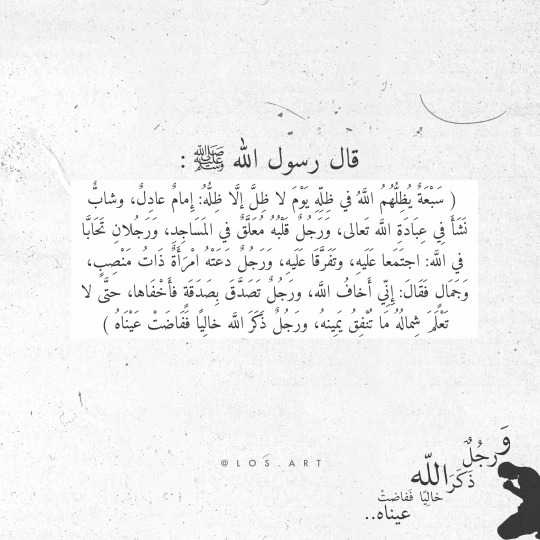 قال رسول الله ﷺ :
( سَبْعَةٌ يُظِلُّهُمُ اللَّهُ في ظِلِّهِ يَوْمَ لا ظِلَّ إلَّا ظِلُّهُ: إمامٌ عادِلٌ، وشابٌّ
نَشَأَ فِي عِبَادَةِ اللَّه تَعالى، وَرَجُلٌ قَلْبُهُ مُعَلَّقٌ فِي المَسَاجِدِ، وَرَجُلان تَحَابَّا
في اللَّه: اجتَمَعا عَلَيهِ، وتَفَرَّقَا عَلَيهِ، وَرَجُلٌ دَعَتْهُ امْرَأَةٌ ذَاتُ مَنْصِبٍ،
وَجَمَالٍ فَقَالَ: إِنِّي أَخافُ اللَّه، ورَجُلٌ تَصَدَّقَ بِصَدَقَةٍ فأَخْفَاها، حتَّى لا
تَعْلَمَ شِمالُهُ مَا تُنْفِقُ يَمِينهُ، ورَجُلٌ ذَكَرَ اللَّه خالِيًا فَفَاضَتْ عَيْنَاهُ )
@LOS.ART
وَرجُلٌ
ذَكَرَ اللّه
خالِيًا فَفاضتْ
عيناه..